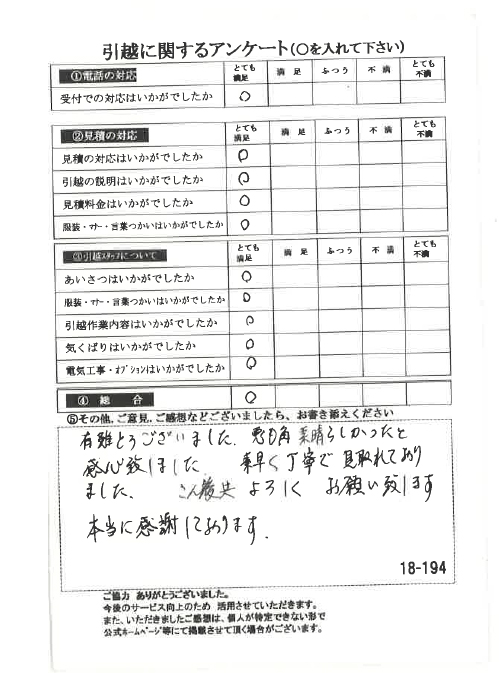 引越に関するアンケート(○を入れて下さい)
①電話の対応 とても満足 満足 ふつう 不満 とても不満
受付での対応はいかがでしたか ○
②見積の対応 とても満足 満足 ふつう 不満 とても不満
見積の対応はいかがでしたか ○
引越の説明はいかがでしたか ○
見積料金はいかがでしたか ○
服装・マナー・言葉つかいはいかがでしたか ○
③引越スタッフについて とても満足 満足 ふつう 不満 とても不満
あいさつはいかがでしたか ○
服装・マナー・言葉つかいはいかがでしたか ○
引越作業内容はいかがでしたか ○
気くばりはいかがでしたか ○
電気工事・オプションはいかがでしたか ○
④ 総 合 ○
⑤その他,ご意見,ご感想などございましたら、お書き添えください
有難とうございました、 素晴らしかったと
感心致しました 素早く丁寧で見取れており
ました、 今後共 よろしく お願い致します
本当に感謝しております.
18-194
ご協力 ありがとうございました。
今後のサービス向上のため 活用させていただきます。
また、いただきましたご感想は、個人が特定できない形で
公式ホームページ等にて掲載させて頂く場合がございます。